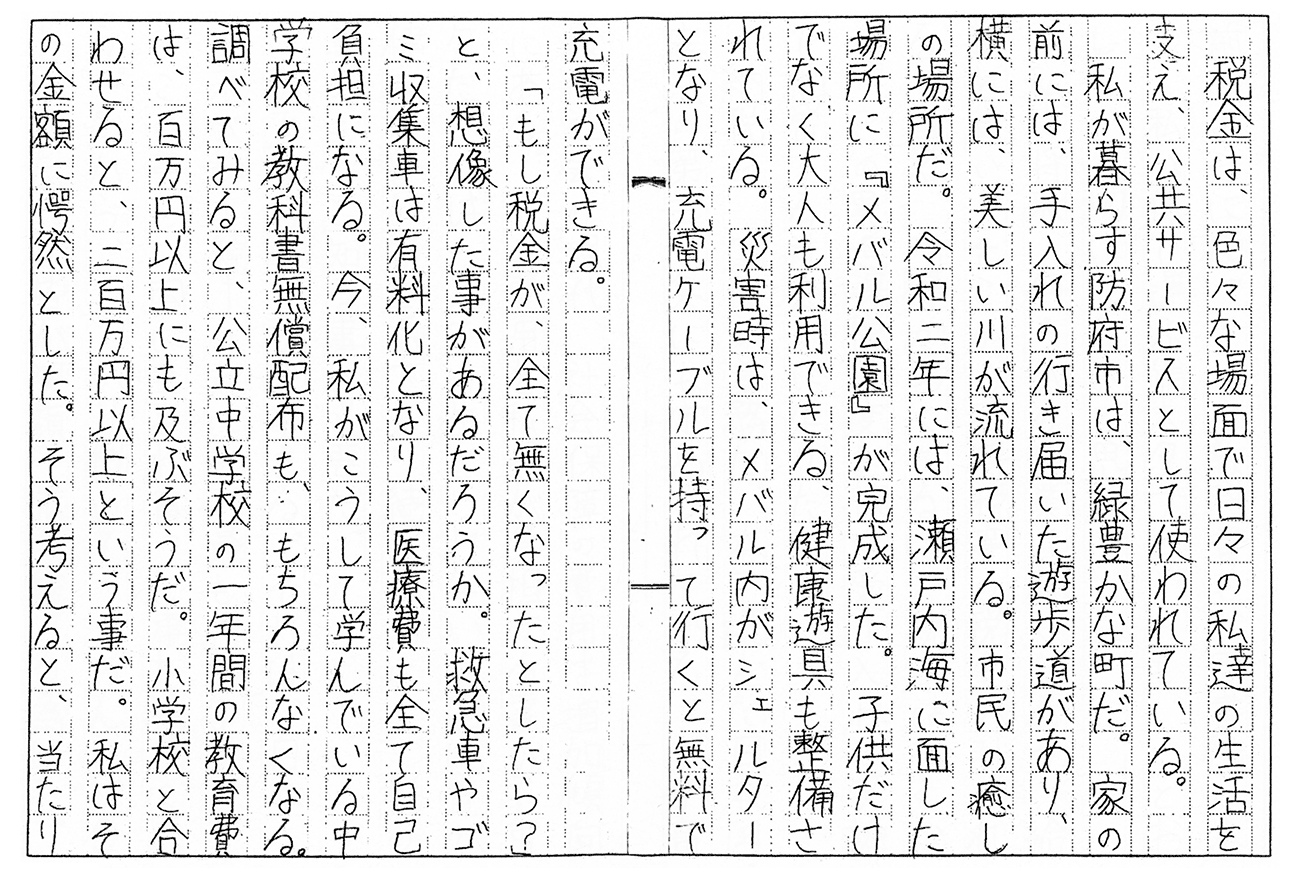 税金は、色々な場面で日々の私達の生活を
支え、公共サービスとして使われている。
私が暮らす防府市は、緑豊かな町だ。家の
前には、手入れの行き届いた遊歩道があり、
横には、美しい川が流れている。市民の癒し
の場所だ。令和二年には、瀬戸内海に面した
場所に『メバル公園』が完成した。子供だけ
でなく大人も利用できる、健康遊具も整備さ
れている。災害時は、メバル内がシェルター
となり、充電ケーブルを持って行くと無料で
充電ができる。
「もし税金が、全て無くなったとしたら？
と、想像した事があるだろうか。救急車やゴ
ミ収集車は有料化となり、医療費も全て自己
負担になる。今、私がこうして学んでいる中
学校の教科書無償配布も、もちろんなくなる。
調べてみると、公立中学校の一年間の教育費
は、百万円以上にも及ぶそうだ。小学校と合
わせると、二百万円以上という事だ。私はそ
の金額に愕然とした。そう考えると、当たり